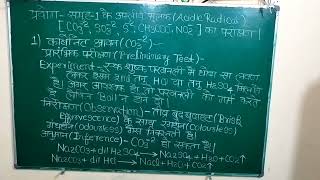 प्रयोग- समूह-1 के अम्लीय मूलक (Acidic Radical)
[CO₃²⁻, SO₃²⁻, S²⁻, CH₃COO⁻, NO₂⁻] का परीक्षण।
1) कार्बोनेट आयन (CO₃²⁻)-
प्रारंभिक परीक्षण (Preliminary Test)-
Experiment- एक शुष्क परखनली में थोड़ा सा लवण
लेकर इसमें dil HCl या तनु H₂SO₄ मिलाते
है। आवश्यक हो, तो परखनली को गर्म करते
लेकिन Boil न होने दो।
निरीक्षण (Observation)- तीव्र बुदबुदाहट (Brisk
Effervescence) के साथ रंगहीन (colourless)
गंधहीन (odourless) गैस निकलती है।
अनुमान (Inference)- CO₃²⁻ हो सकता है।
Na₂CO₃ + dil H₂SO₄ → Na₂SO₄ + H₂O + CO₂↑
Na₂CO₃ + dil HCl → NaCl + H₂O + CO₂↑